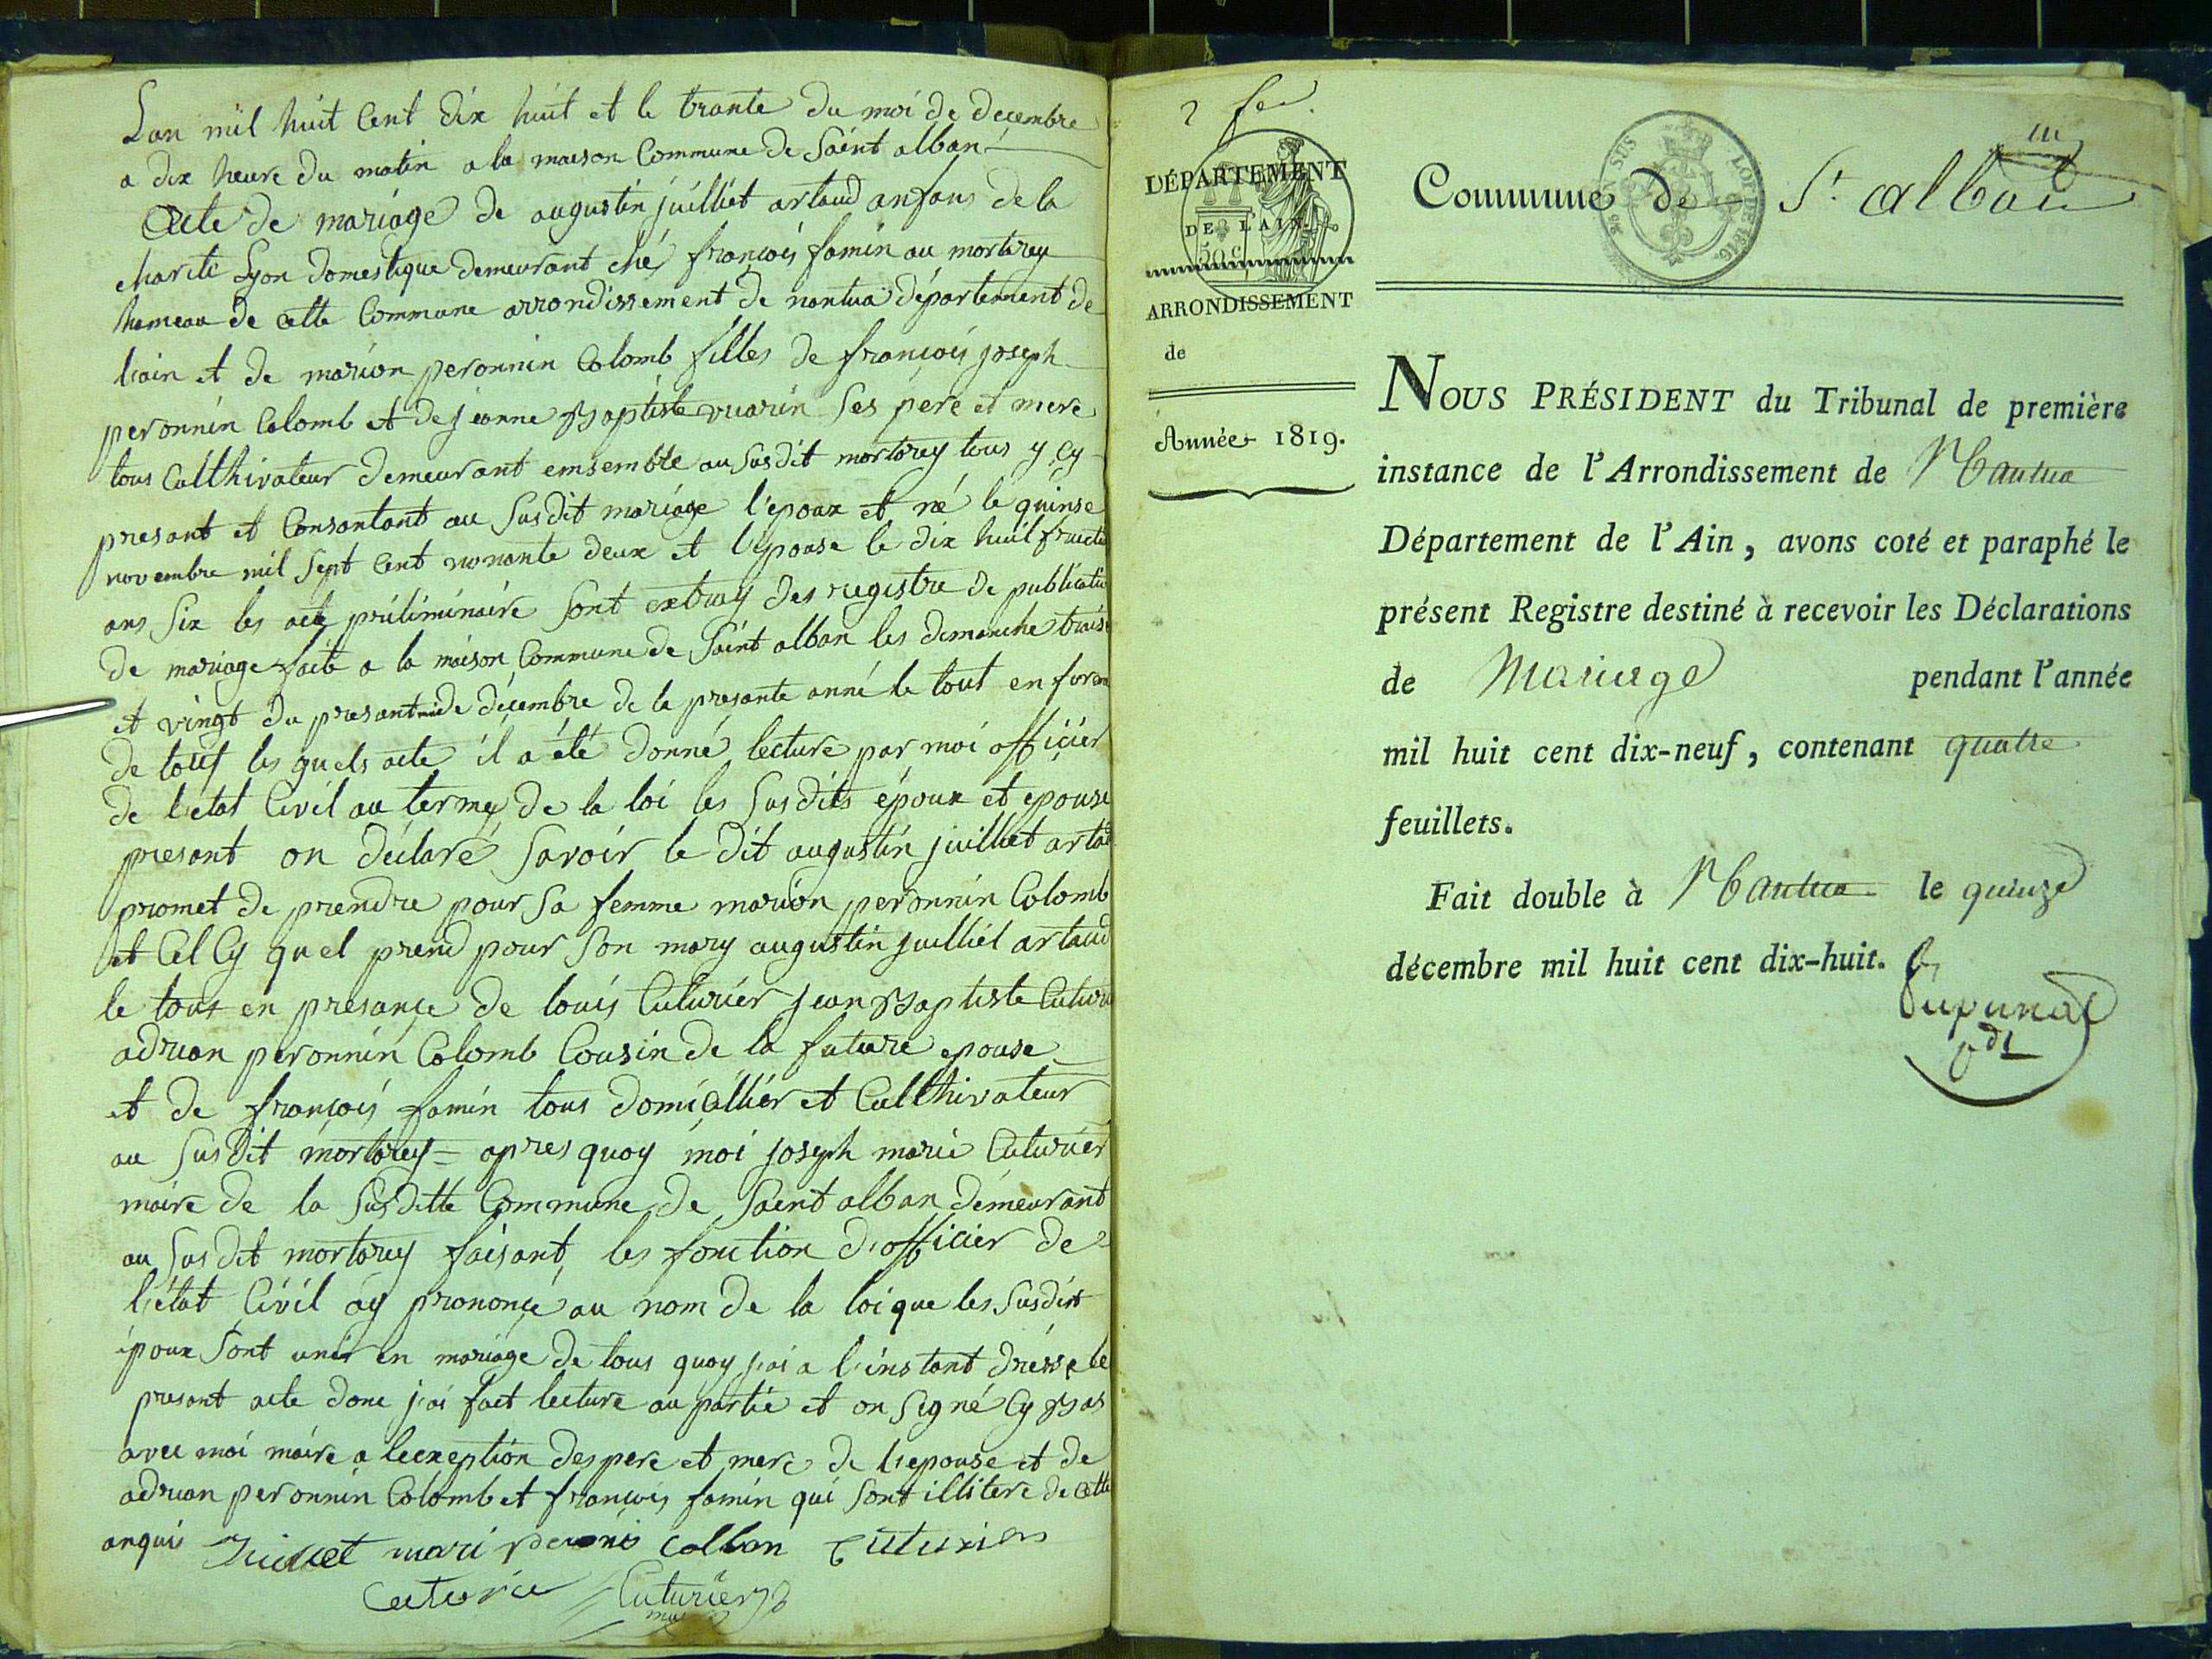 Lan mil huit Cent dix huit et le trante du moi de decembre
a dix heure du matin a la maison Commune de Saint alban
Acte de mariage de augustin juilliet artaud anfans de la
charite Lyon domestique demeurant ché françois famin au mortarey
hameau de cette Commune arrondissement de nantua département de
l'ain et de marion peronnin Colomb filles de françois joseph
peronnin Colomb et de jeanne Baptiste vuarin ses pere et mere
tous Culthivateur demeurant emsemble au susdit mortarey tous y cy
presant et Consantant au susdit mariage l'epoux et né le quinse
novembre mil sept Cent nonante deux et l'epouse le dix huit fructi
ans six les acte préliminaire sont extray des registre de publicatio
de mariage faite a la maison Commune de Saint alban les dimanche traise
et vingt du presant moi de décembre de la presante anné le tout en forme
de tous les quels acte il a été donné lecture par moi officier
de l'etat Civil au terme de la loi les susdits époux et epouse
presant on déclaré savoir le dit augustin juilliet artau
promet de prendre pour sa femme marion peronnin Colomb
et Cel Cy quel prend pour son mary augustin juilliet artaud
le tous en presançe de louis Cuturier jean Baptiste Cuturi
adrian peronnin Colomb Cousin de la future epouse
et de françois famin tous domicillier et Culthivateur
au susdit mortarey = apres quoy moi joseph marie Cuturier
maire de la susditte Commune de Saint alban demeurant
au susdit mortarey faisant les fonction d'officier de
l'état Civil ay prononçé au nom de la loi que les susdits
époux sont unis en mariage de tous quoy j'ai a l'instant dréssé le
presant acte donc j'ai fait lecture au partie et on signé Cy Bas
avec moi maire a l'exeption des pere et mere de l'epouse et de
adrian peronnin Colomb et françois famin qui sont illitere de cette
anquis Juillet mari peronis collon cuturier
Cuturier Cuturier
2 fer.
DÉPARTEMENT
DE L'AIN.
50 c
ARRONDISSEMENT
de
Année 1819.
Commune de St alban
LOI DE 1816.
NOUS PRÉSIDENT du Tribunal de première
instance de l'Arrondissement de Nantua
Département de l'Ain, avons coté et paraphé le
présent Registre destiné à recevoir les Déclarations
de Mariage pendant l'année
mil huit cent dix-neuf, contenant quatre
feuillets.
Fait double à Nantua le quinze
décembre mil huit cent dix-huit.